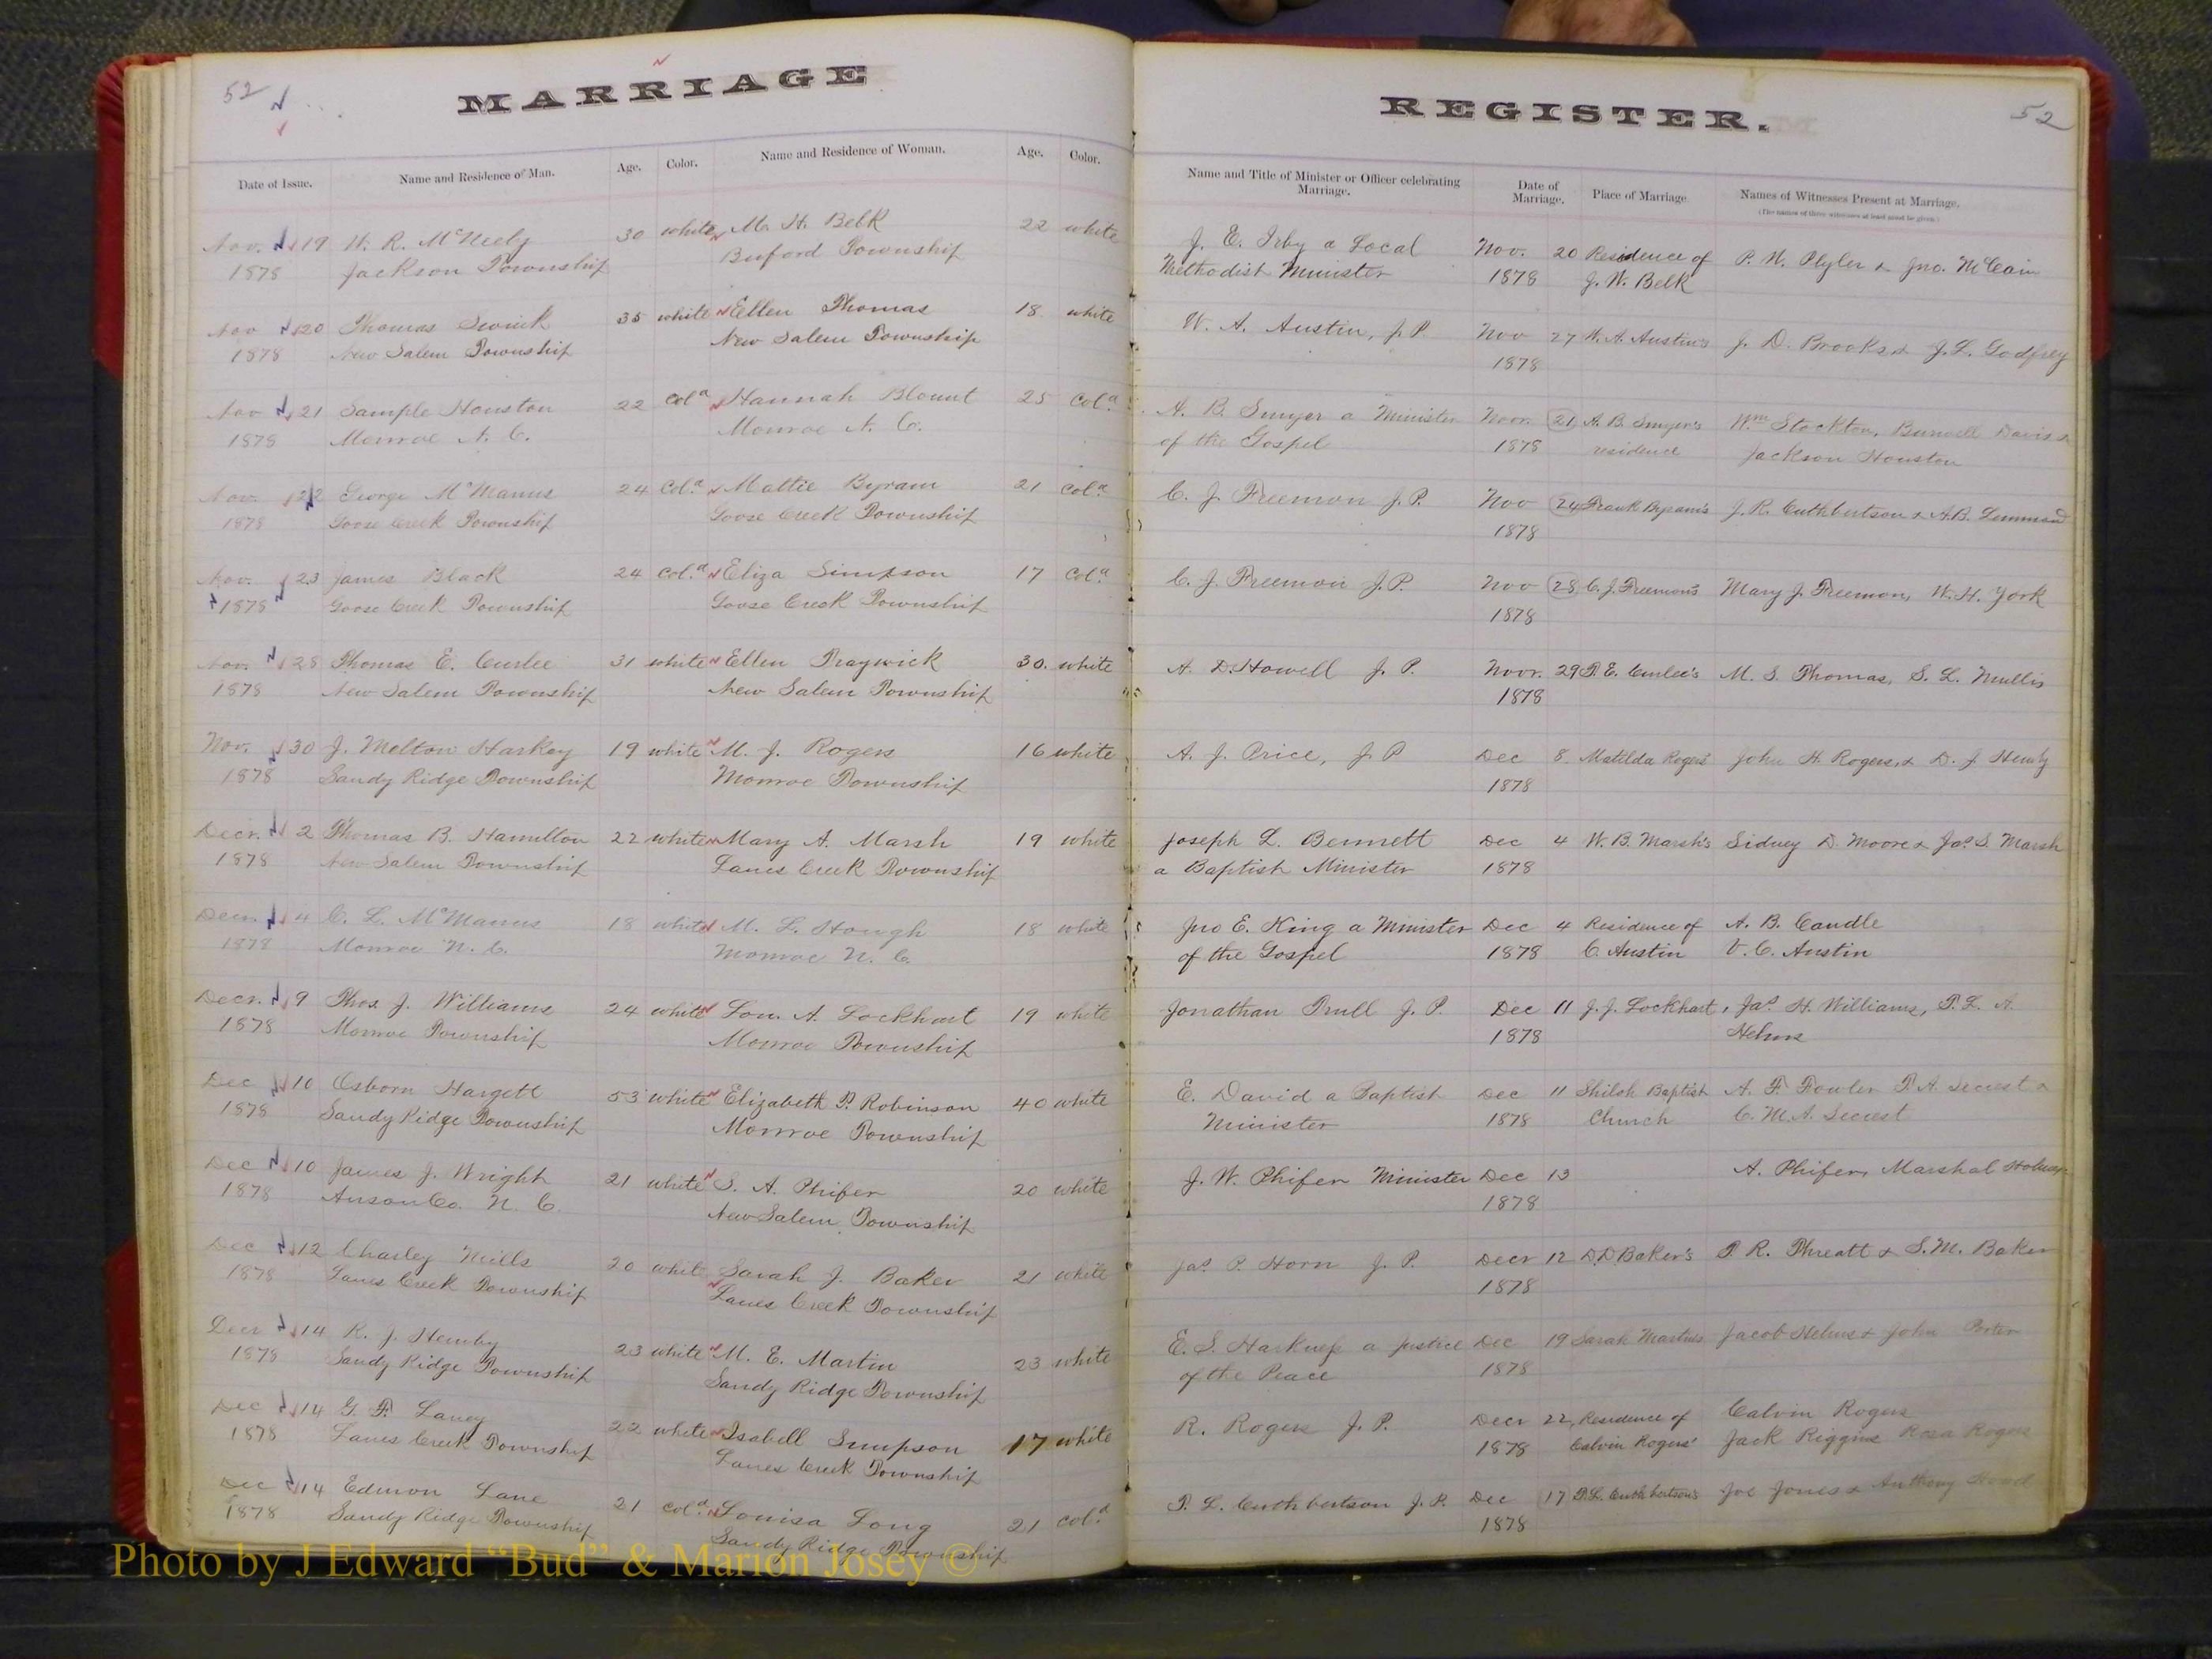 52
MARRIAGE
REGISTER.
52
Date of Issue. Name and Residence of Man. Age. Color. Name and Residence of Woman. Age. Color. Name and Title of Minister or Officer celebrating Marriage. Date of Marriage. Place of Marriage. Names of Witnesses Present at Marriage.
(The names of three witnesses at least must be given.)
Nov. 19 W. R. McNeely 30 white M. H. Belk 22 white J. E. Irby a Local Nov. 20 Residence of P. W. Plyler & Jno. McCain
1878 Jackson Township Buford Township Methodist Minister 1878 J. W. Belk
Nov 20 Thomas 35 white Ellen Thomas 18 white W. A. Austin, J.P. Nov 27 W. A. Austin's J. D. Brooks & J. L. Godfrey
1878 New Salem Township New Salem Township 1878
Nov 21 Sample Houston 22 Cold Hannah Blount 25 Cold A. B. Smyer a Minister Novr. 21 A. B. Smyer's Wm Stockton, Burwell Davis &
1878 Monroe N. C. Monroe N. C. of the Gospel 1878 residence Jackson Houston
Nov. 22 George McManus 24 Cold Mattie Byram 21 Cold C. J. Freemon J.P. Nov 24 Frank Byram's J. R. Cuthbertson & A. B.
1878 Goose Creek Township Goose Creek Township 1878
Nov. 23 James Black 24 Cold Eliza Simpson 17 Cold C. J. Freemon J.P. Nov 28 C. J. Freemon's Mary J. Freemon, W. H. York
1878 Goose Creek Township Goose Creek Township 1878
Nov. 28 Thomas E. Curlee 31 white Ellen Traywick 30. white A. D. Howell J. P. Novr. 29 T. E. Curlee's M. S. Thomas, S. L. Mullis
1878 New Salem Township New Salem Township 1878
Nov. 30 J. Melton Harkey 19 white M. J. Rogers 16 white A. J. Price, J. P Dec 8 Matilda Rogers' John H. Rogers, & D. J.
1878 Sandy Ridge Township Monroe Township 1878
Decr. 2 Thomas B. Hamilton 22 white Mary A. Marsh 19 white Joseph L. Bennett Dec 4 W. B. Marsh's Sidney D. Moore & Jas. S. Marsh
1878 New Salem Township Lanes Creek Township a Baptist Minister 1878
Decr. 4 C. L. McManus 18 white M. L. Hough 18 white Jno E. King a Minister Dec 4 Residence of A. B. Caudle
1878 Monroe N. C. Monroe N. C. of the Gospel 1878 C. Austin V. C. Austin
Decr. 9 Thos. J. Williams 24 white Lou. A. Lockhart 19 white Jonathan Trull J. P. Dec 11 J. J. Lockhart, Jas. H. Williams, T. L. A.
1878 Monroe Township Monroe Township 1878 Helms
Dec 10 Osborn Hargett 53 white Elizabeth P. Robinson 40 white E. David a Baptist Dec 11 Shiloh Baptist A. F. Fowler T. A. Secrest &
1878 Sandy Ridge Township Monroe Township Minister 1878 Church C. M. A. Secrest
Dec 10 James J. Wright 21 white S. A. Phifer 20 white J. W. Phifer Minister Dec 13 A. Phifer, Marshal
1878 Anson Co. N. C. New Salem Township 1878
Dec 12 Charley Mills 20 white Sarah J. Baker 21 white Jas. P. Horn J. P. Decr 12 D. D. Baker's T. R. Threatt & S. M. Baker
1878 Lanes Creek Township Lanes Creek Township 1878
Decr 14 R. J. Hemby 23 white M. E. Martin 23 white E. S. a Justice Dec 19 Sarah Martin's Jacob Helms & John Porter
1878 Sandy Ridge Township Sandy Ridge Township of the Peace 1878
Dec 14 G. F. Laney 22 white Isabell Simpson 17 white R. Rogers J. P. Decr 22, Residence of Calvin Rogers
1878 Lanes Creek Township Lanes Creek Township 1878 Calvin Rogers' Jack Riggins Rosa Rogers
Dec 14 Edmon Lane 21 Cold Louisa Long 21 Cold P. L. Cuthbertson J. P. Dec 17 P. L. Cuthbertson's Joe Jones & Anthony
1878 Sandy Ridge Township Sandy Ridge Township 1878
Photo by J Edward "Bud" & Marion Josey ©